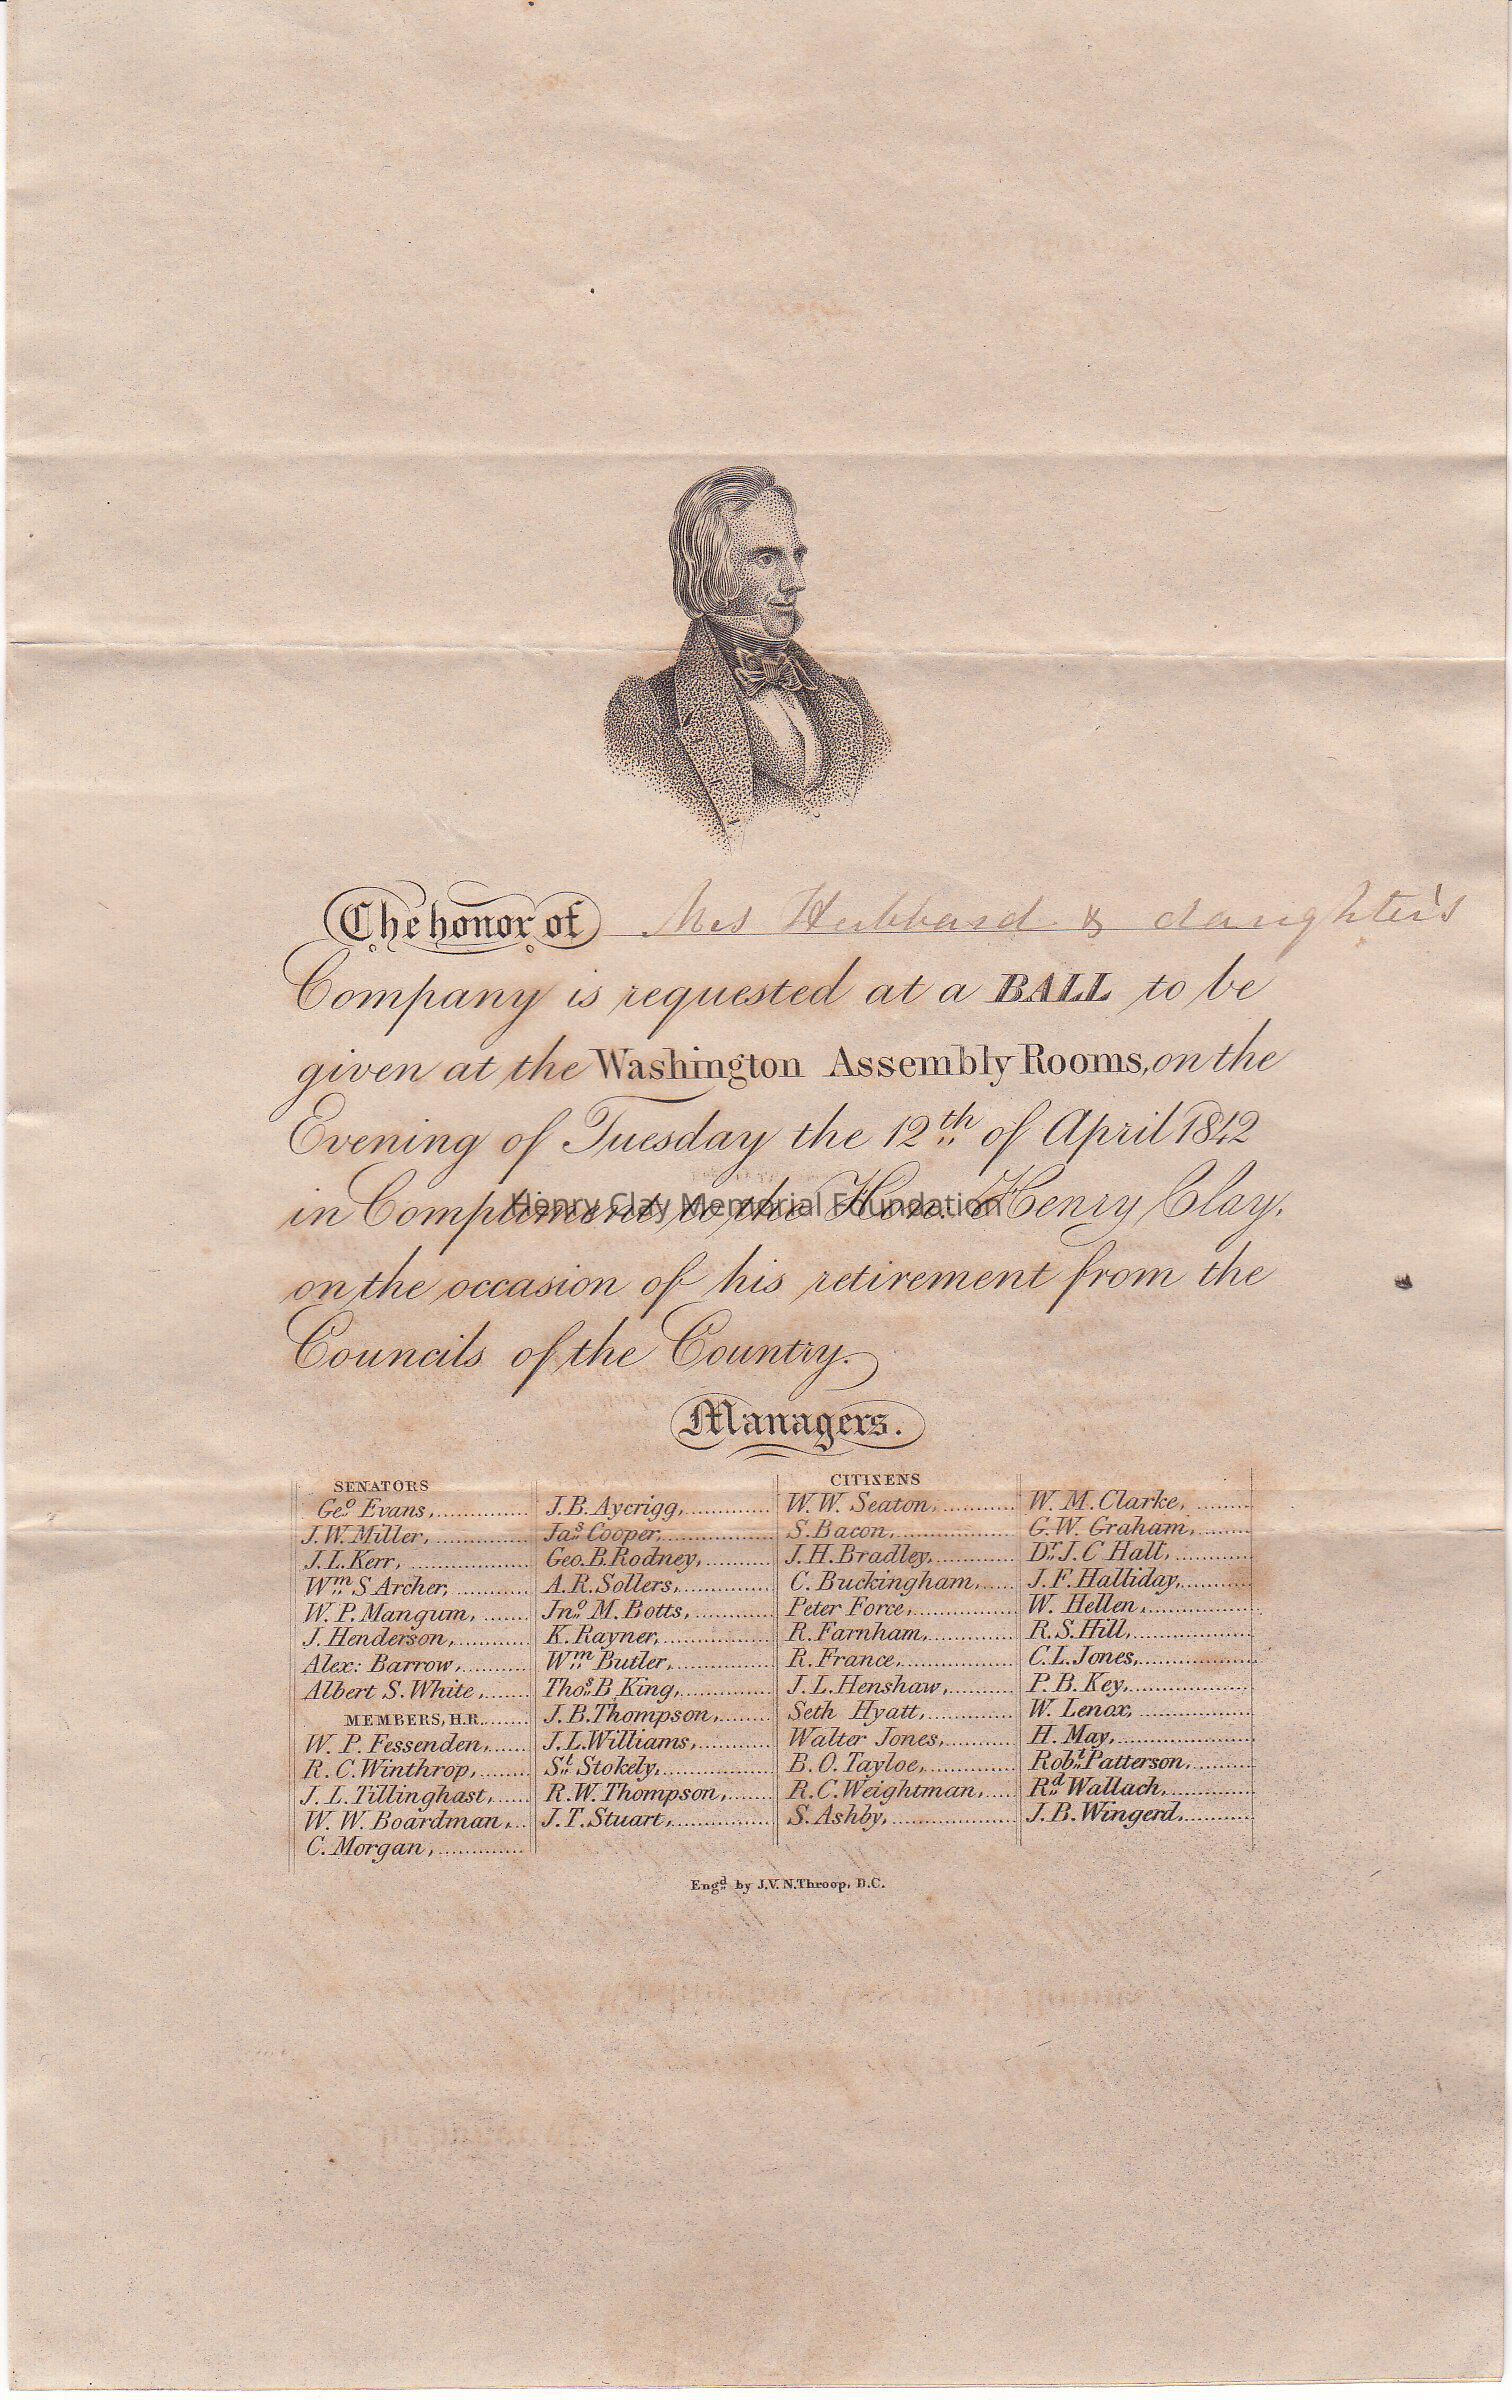 The honor of Mrs Hubbard & daughter's
Company is requested at a BALL to be
given at the Washington Assembly Rooms, on the
Evening of Tuesday the 12th of April 1842
in Compliment to the Hon: Henry Clay,
Henry Clay Memorial Foundation
on the occasion of his retirement from the
Councils of the Country.
Managers.
SENATORS
Geo. Evans,
J. W. Miller,
J. L. Kerr,
Wm. S Archer,
W. P. Mangum,
J. Henderson,
Alex: Barrow,
Albert S. White,
MEMBERS, H.R.
W. P. Fessenden,
R. C. Winthrop,
J. L. Tillinghast,
W. W. Boardman,
C. Morgan,
J. B. Aycrigg,
Jas. Cooper,
Geo. B. Rodney,
A. R. Sollers,
Jno. M. Botts,
K. Rayner,
Wm. Butler,
Thos. B. King,
J. B. Thompson,
J. L. Williams,
Sl. Stokely,
R. W. Thompson,
J. T. Stuart,
CITIZENS
W. W. Seaton,
S. Bacon,
J. H. Bradley,
C. Buckingham,
Peter Force,
R. Farnham,
R. France,
J. L. Henshaw,
Seth Hyatt,
Walter Jones,
B. O. Tayloe,
R. C. Weightman,
S. Ashby,
W. M. Clarke,
G. W. Graham,
Dr. J. C Hall,
J. F. Halliday,
W. Hellen,
R. S. Hill,
C. L. Jones,
P. B. Key,
W. Lenox,
H. May,
Robt. Patterson,
Rd. Wallach,
J. B. Wingerd,
Engd. by J. V. N. Throop, D.C.